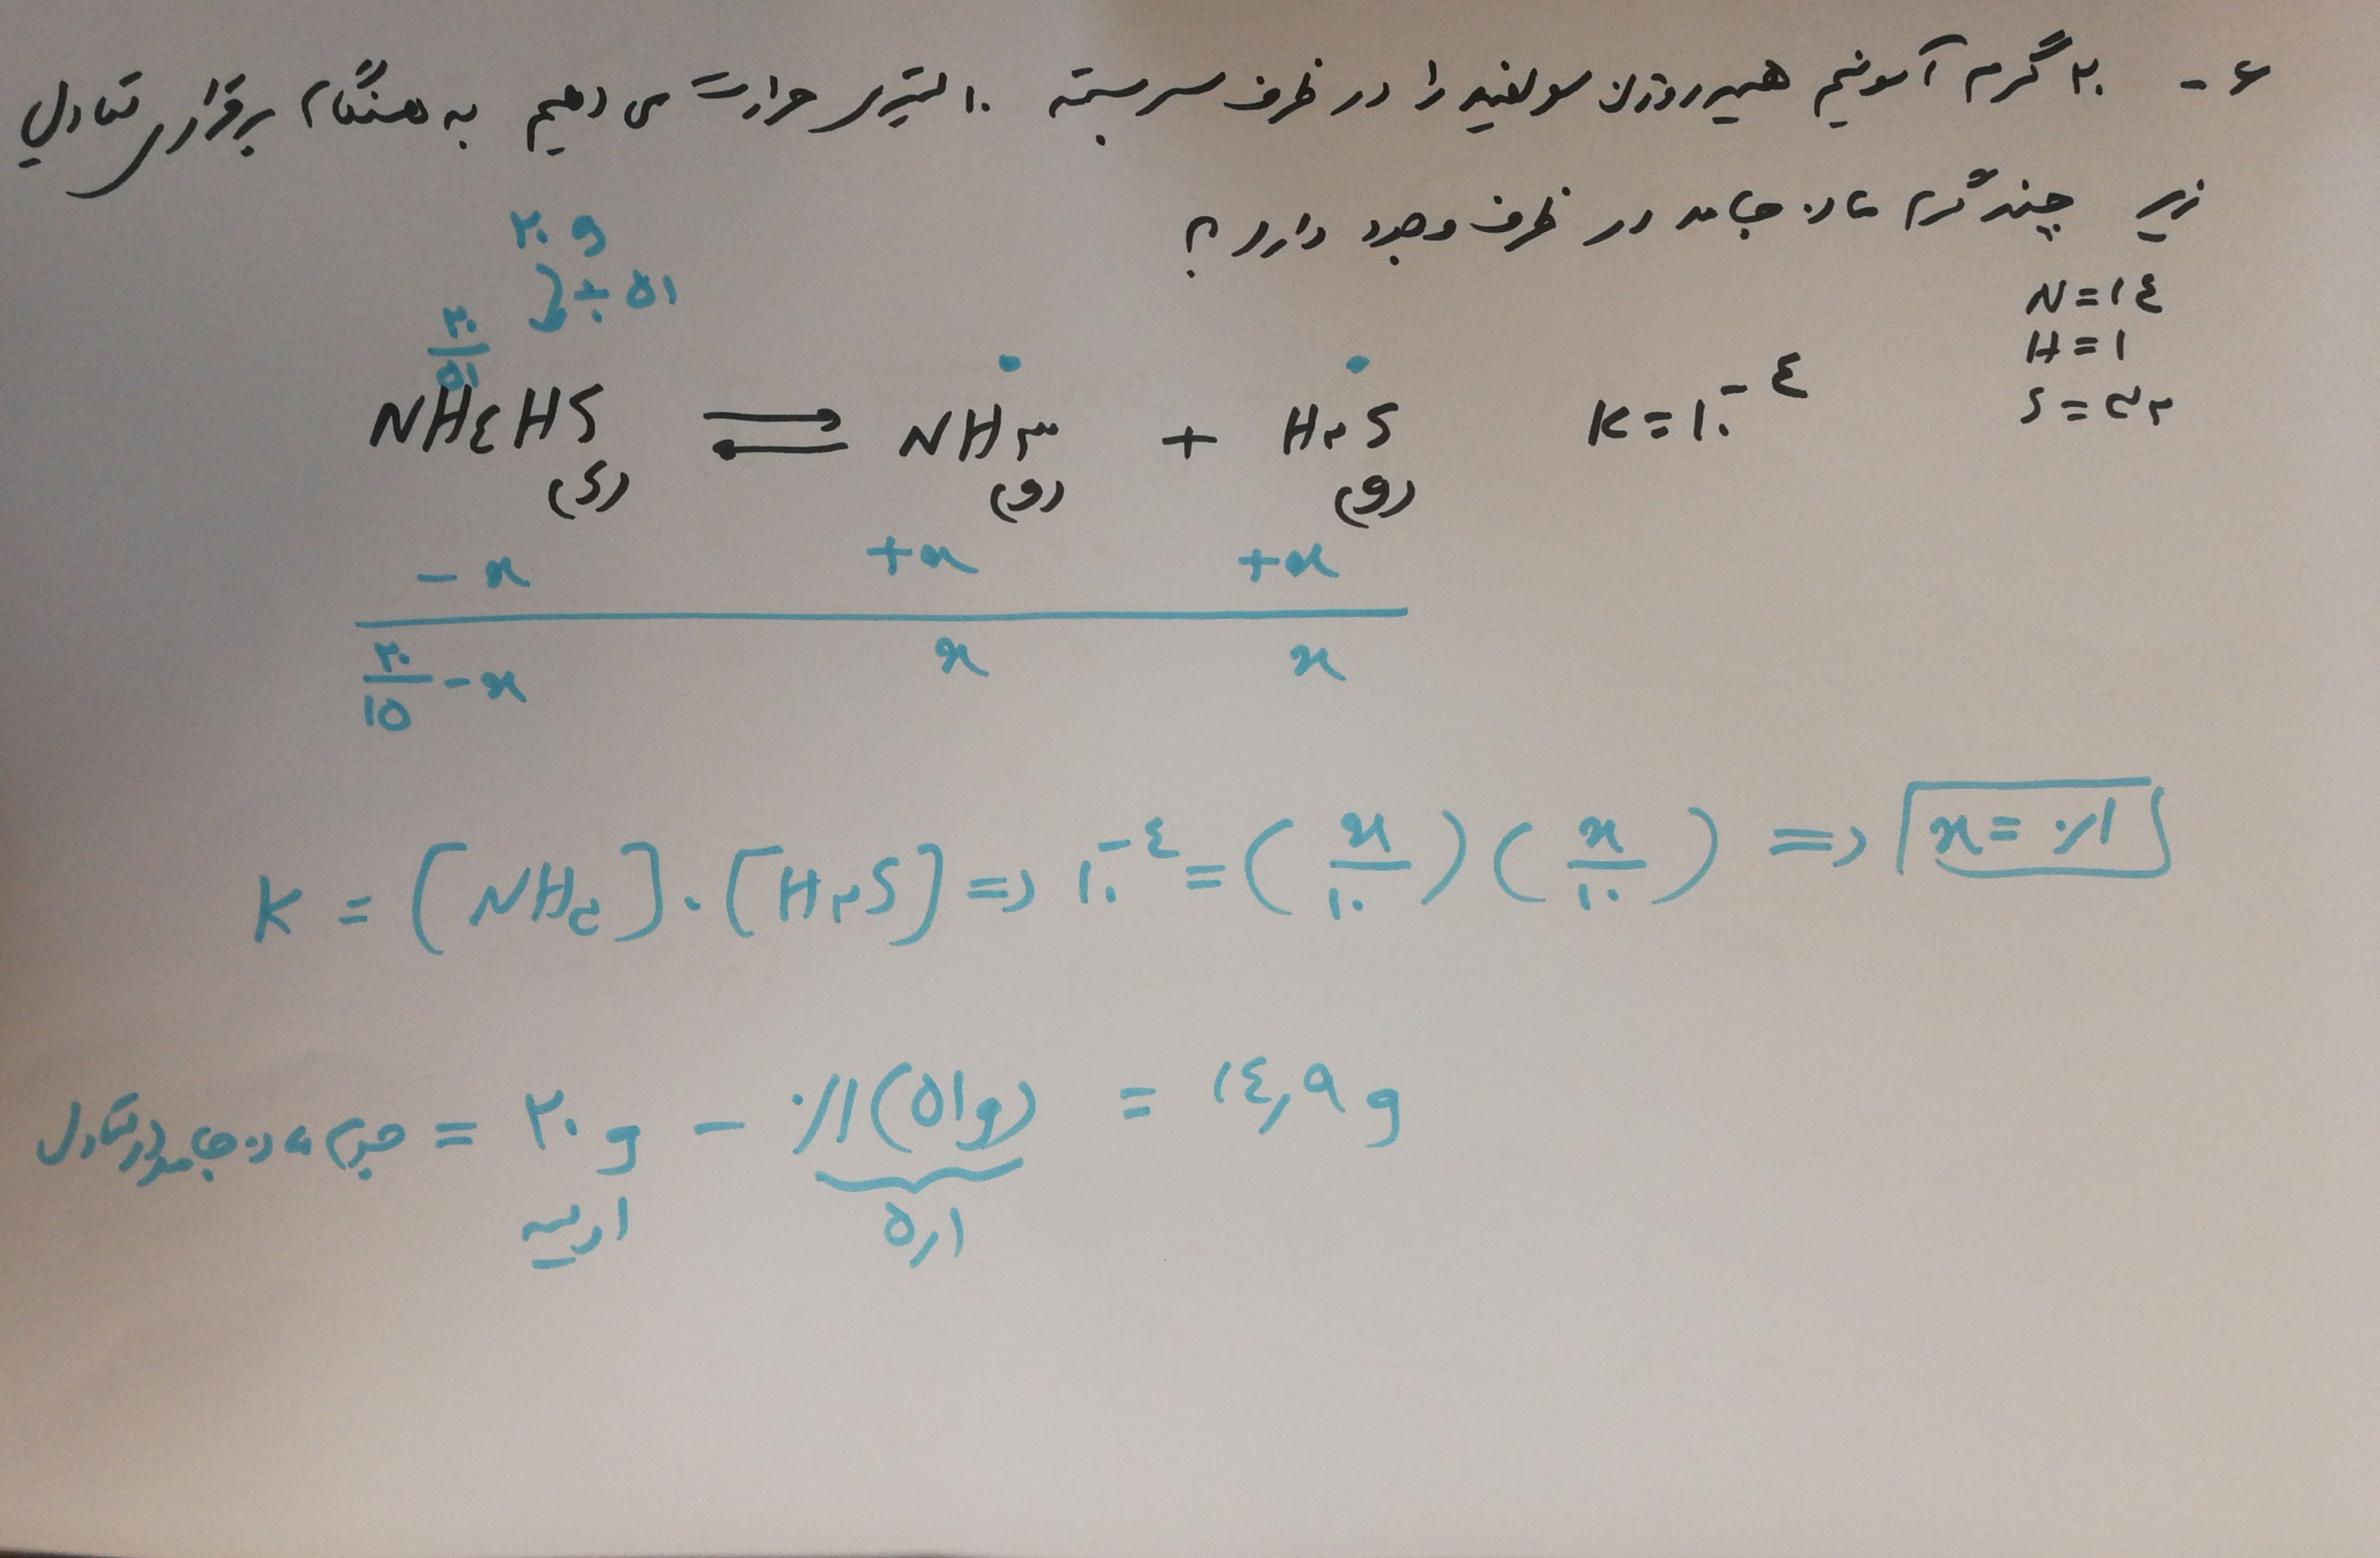 ۶ - ۲۰ گرم آمونیم هیدروژن سولفید را در ظرف سربسته ۱۰ لیتری حرارت می دهیم به هنگام برقراری تعادل
زیر چند گرم ماده جامد در ظرف وجود دارد؟
N = ۱۴
H = ۱
S = ۳۲
۲۰ g
÷ ۵۱
۲۰/۵۱ ۰ ۰
NH۴HS (s) ⇌ NH۳ (g) + H۲S (g) K = ۱۰^-۴
-x +x +x
۲۰/۱۵ - x x x
K = [NH۳].[H۲S] => ۱۰^-۴ = (x/۱۰)(x/۱۰) => x = ۰/۱
جرم ماده جامد در تعادل = ۲۰ g - ۰/۱(۵۱g) = ۱۴,۹ g
اولیه ۵,۱